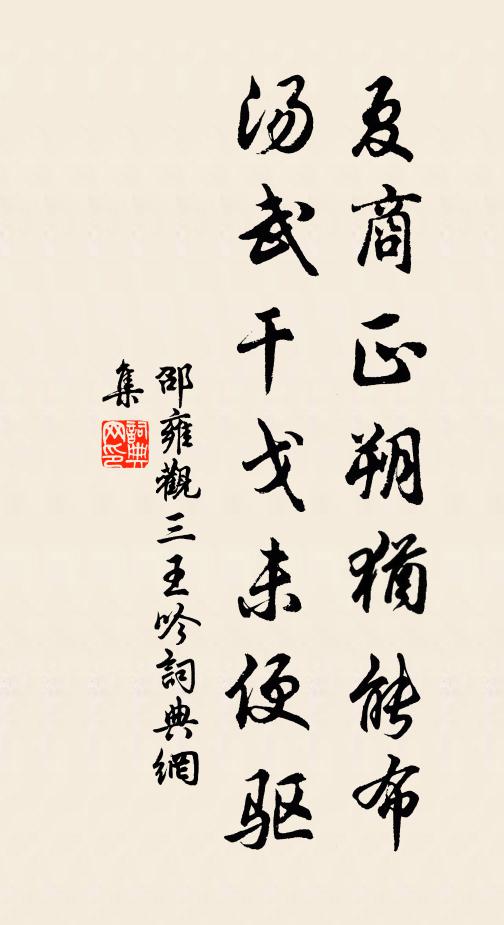 夏商正朔猶能布
汤武干戈未便驱
邵雍觀三王吟詞典網
集
詞典
网印